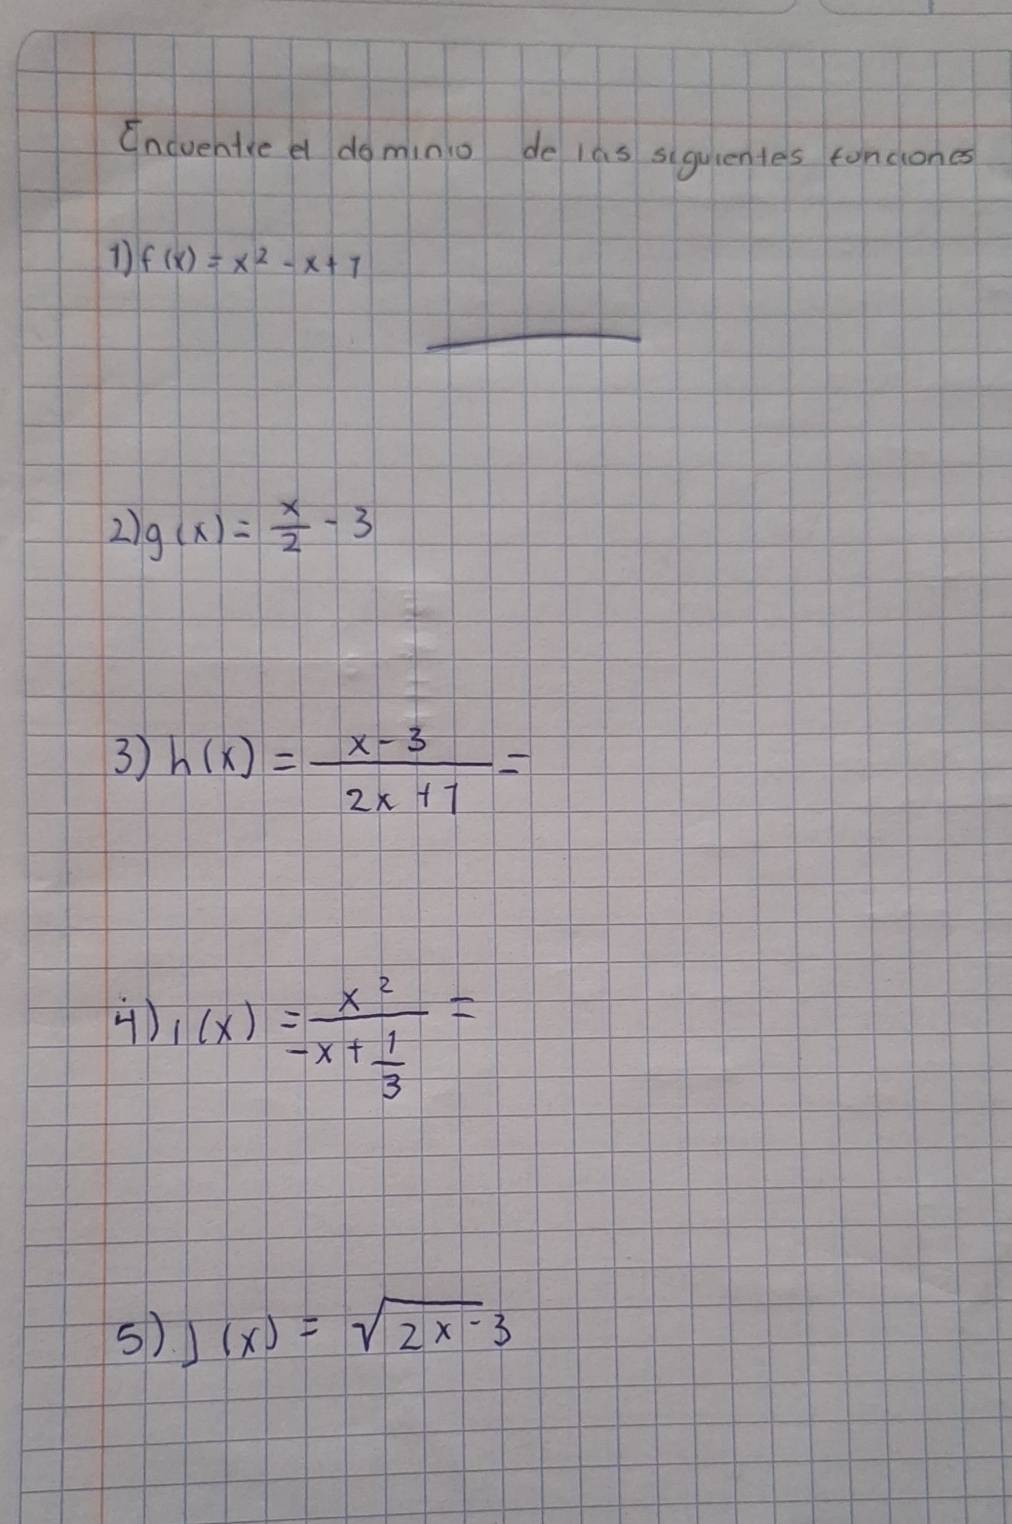 Encuentre el dominio de las siguientes funciones
1) f(x) = x² - x + 1
2) g(x) = x/2 - 3
3) h(x) = x - 3 / 2x + 1 =
4) i(x) = x² / -x + 1/3 =
5) j(x) = √2x - 3